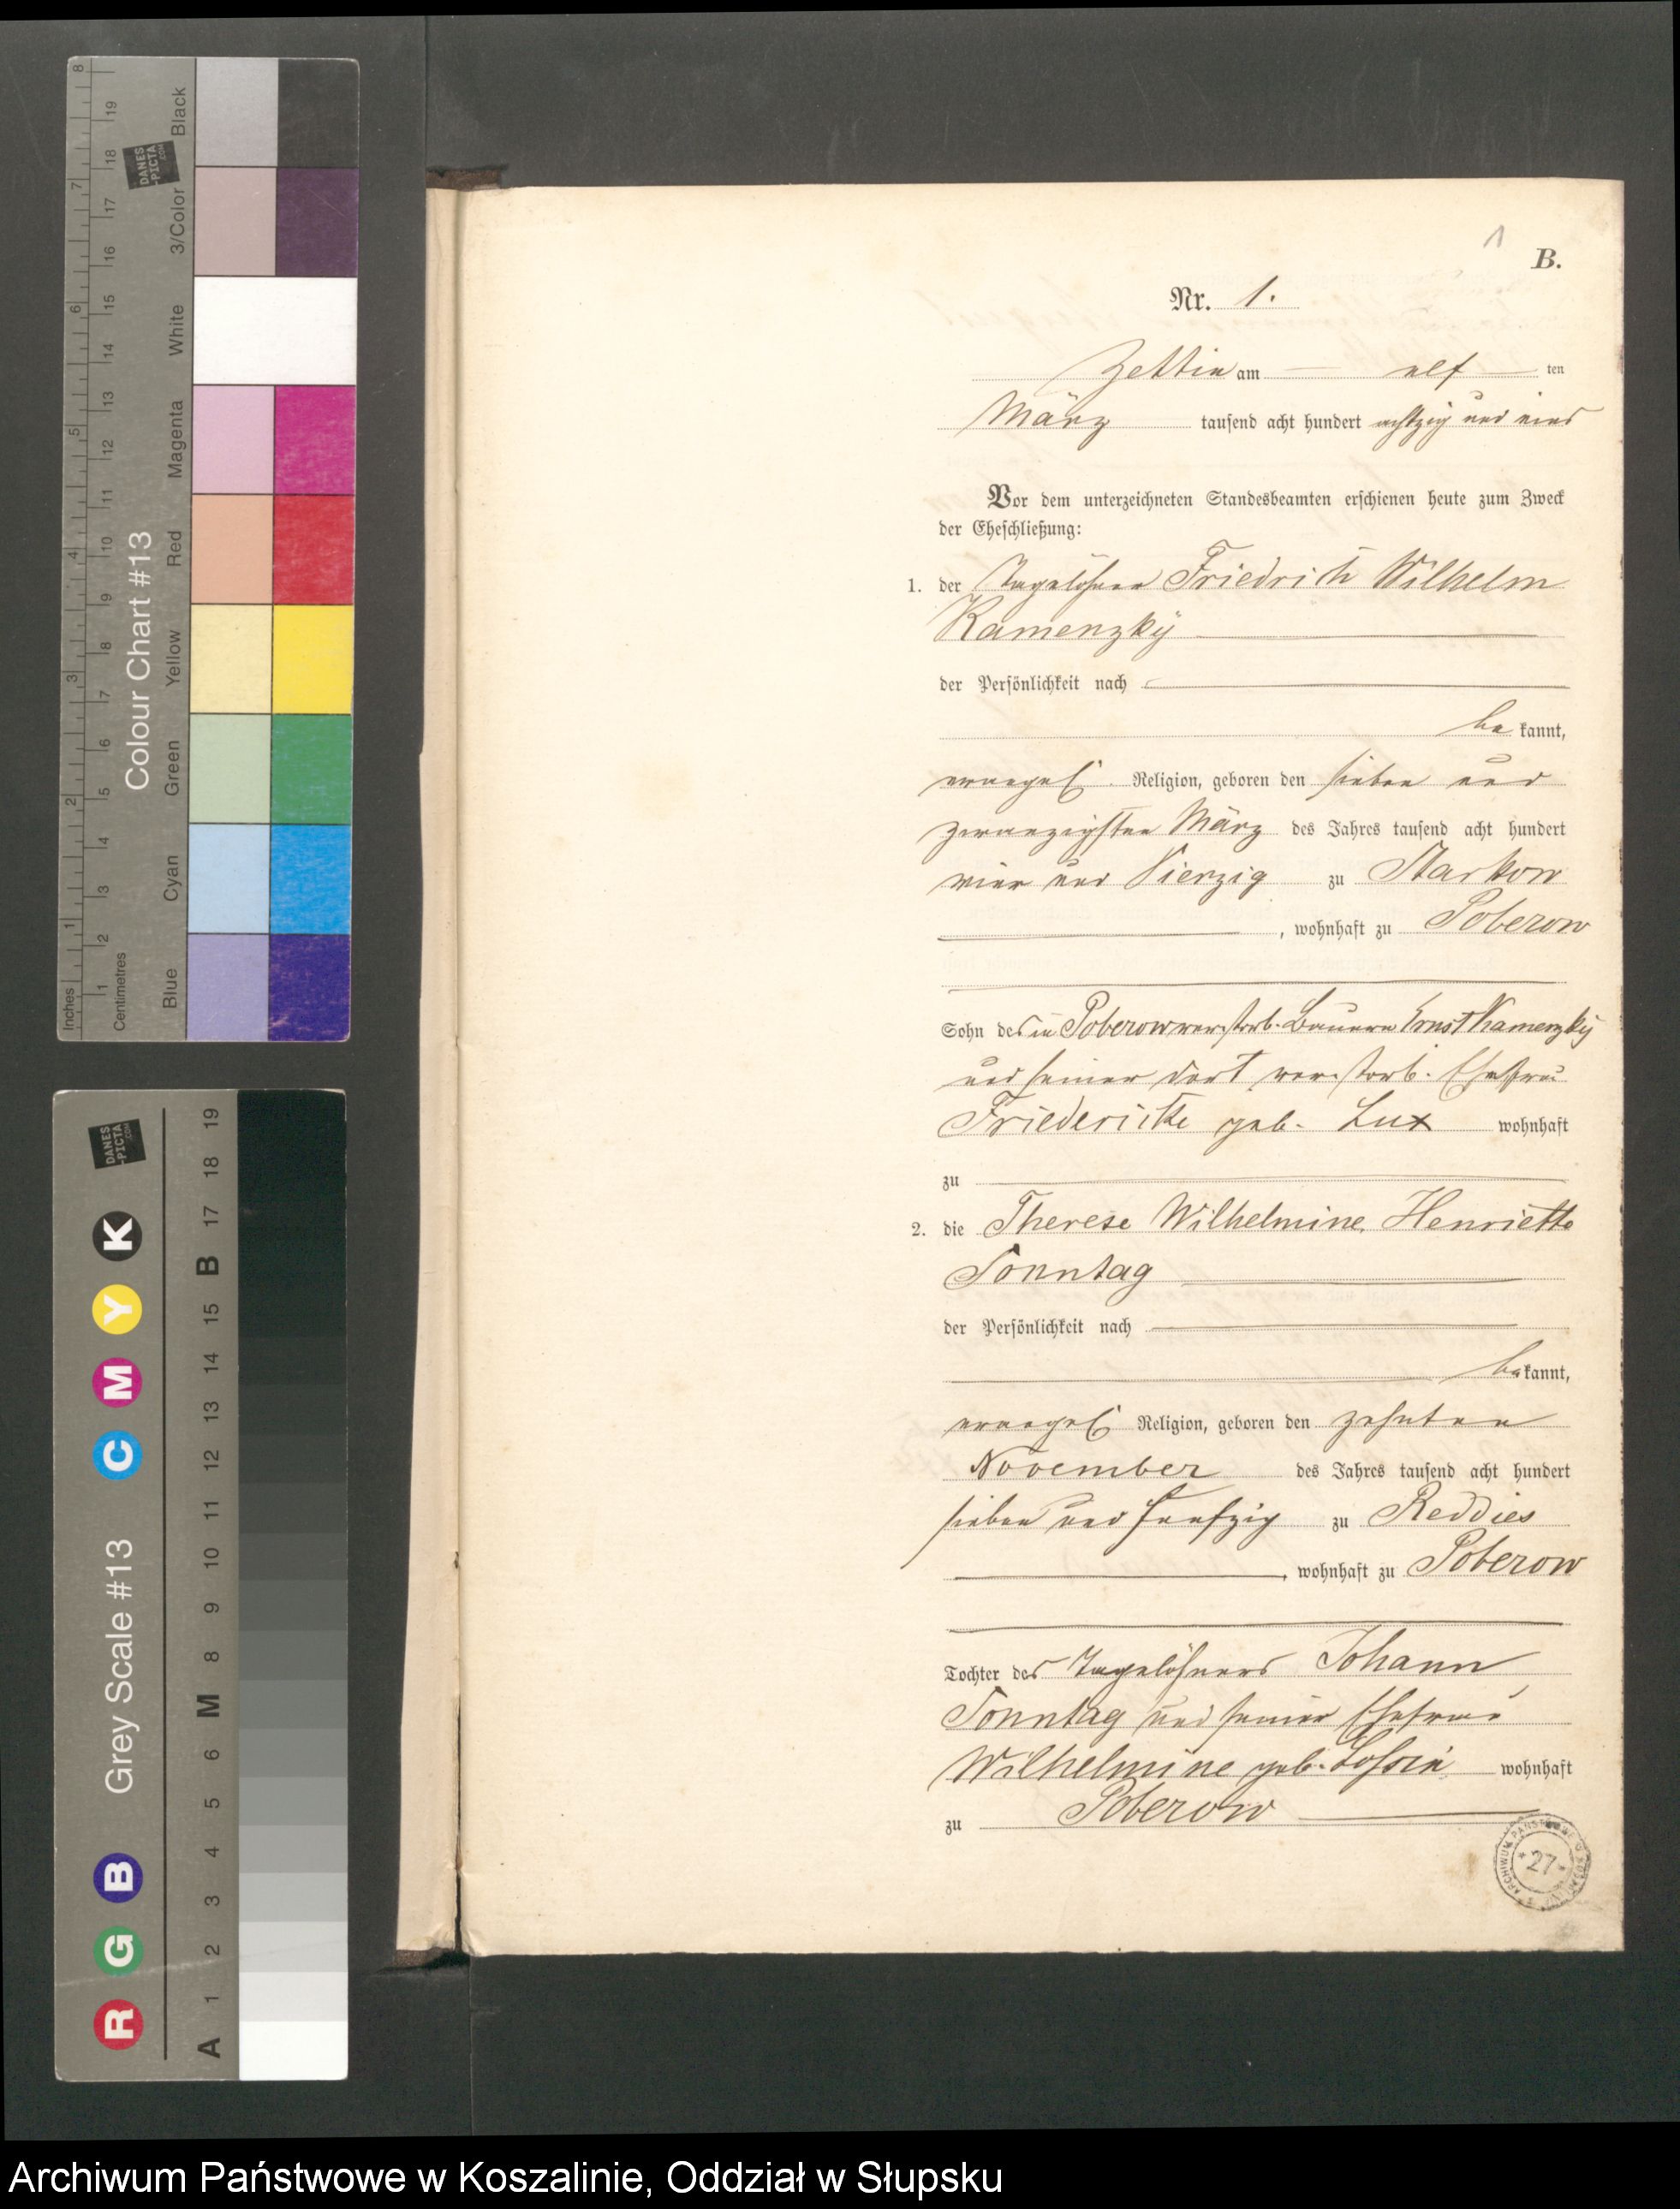 8 7 6 5 4 3 2 1 Inches
19 18 17 16 15 14 13 12 11 10 9 8 7 6 5 4 3 2 1 Centimetres
DANES
-PICTA
.COM
Colour Chart #13
Black
3/Color
White
Magenta
Red
Yellow
Green
Cyan
Blue
DANES
-PICTA
.COM
Grey Scale #13
R G B C M Y K
A 1 2 3 4 5 6 M 8 9 10 11 12 13 14 15 B 17 18 19
1
B.
Nr. 1.
Zettin am elf ten
März tausend acht hundert achtzig und eins
Vor dem unterzeichneten Standesbeamten erschienen heute zum Zweck
der Eheschließung:
1. der Tagelöhner Friedrich Wilhelm
Kamenzky
der Persönlichkeit nach
be kannt,
evangel. Religion, geboren den sieben und
zwanzigsten März des Jahres tausend acht hundert
vier und Vierzig zu Starkow
, wohnhaft zu Poberow
Sohn des in Poberow verstorb. Bauern Ernst Kamenzky
und seiner dort verstorb. Ehefrau
Friedericke geb. Lux wohnhaft
zu
2. die Therese Wilhelmine Henriette
Sonntag
der Persönlichkeit nach
bekannt,
evangel. Religion, geboren den zehnten
November des Jahres tausend acht hundert
sieben und funfzig zu Reddies
, wohnhaft zu Poberow
Tochter des Tagelöhners Johann
Sonntag und seiner Ehefrau
Wilhelmine geb. wohnhaft
zu Poberow
27
Archiwum Państwowe w Koszalinie, Oddział w Słupsku